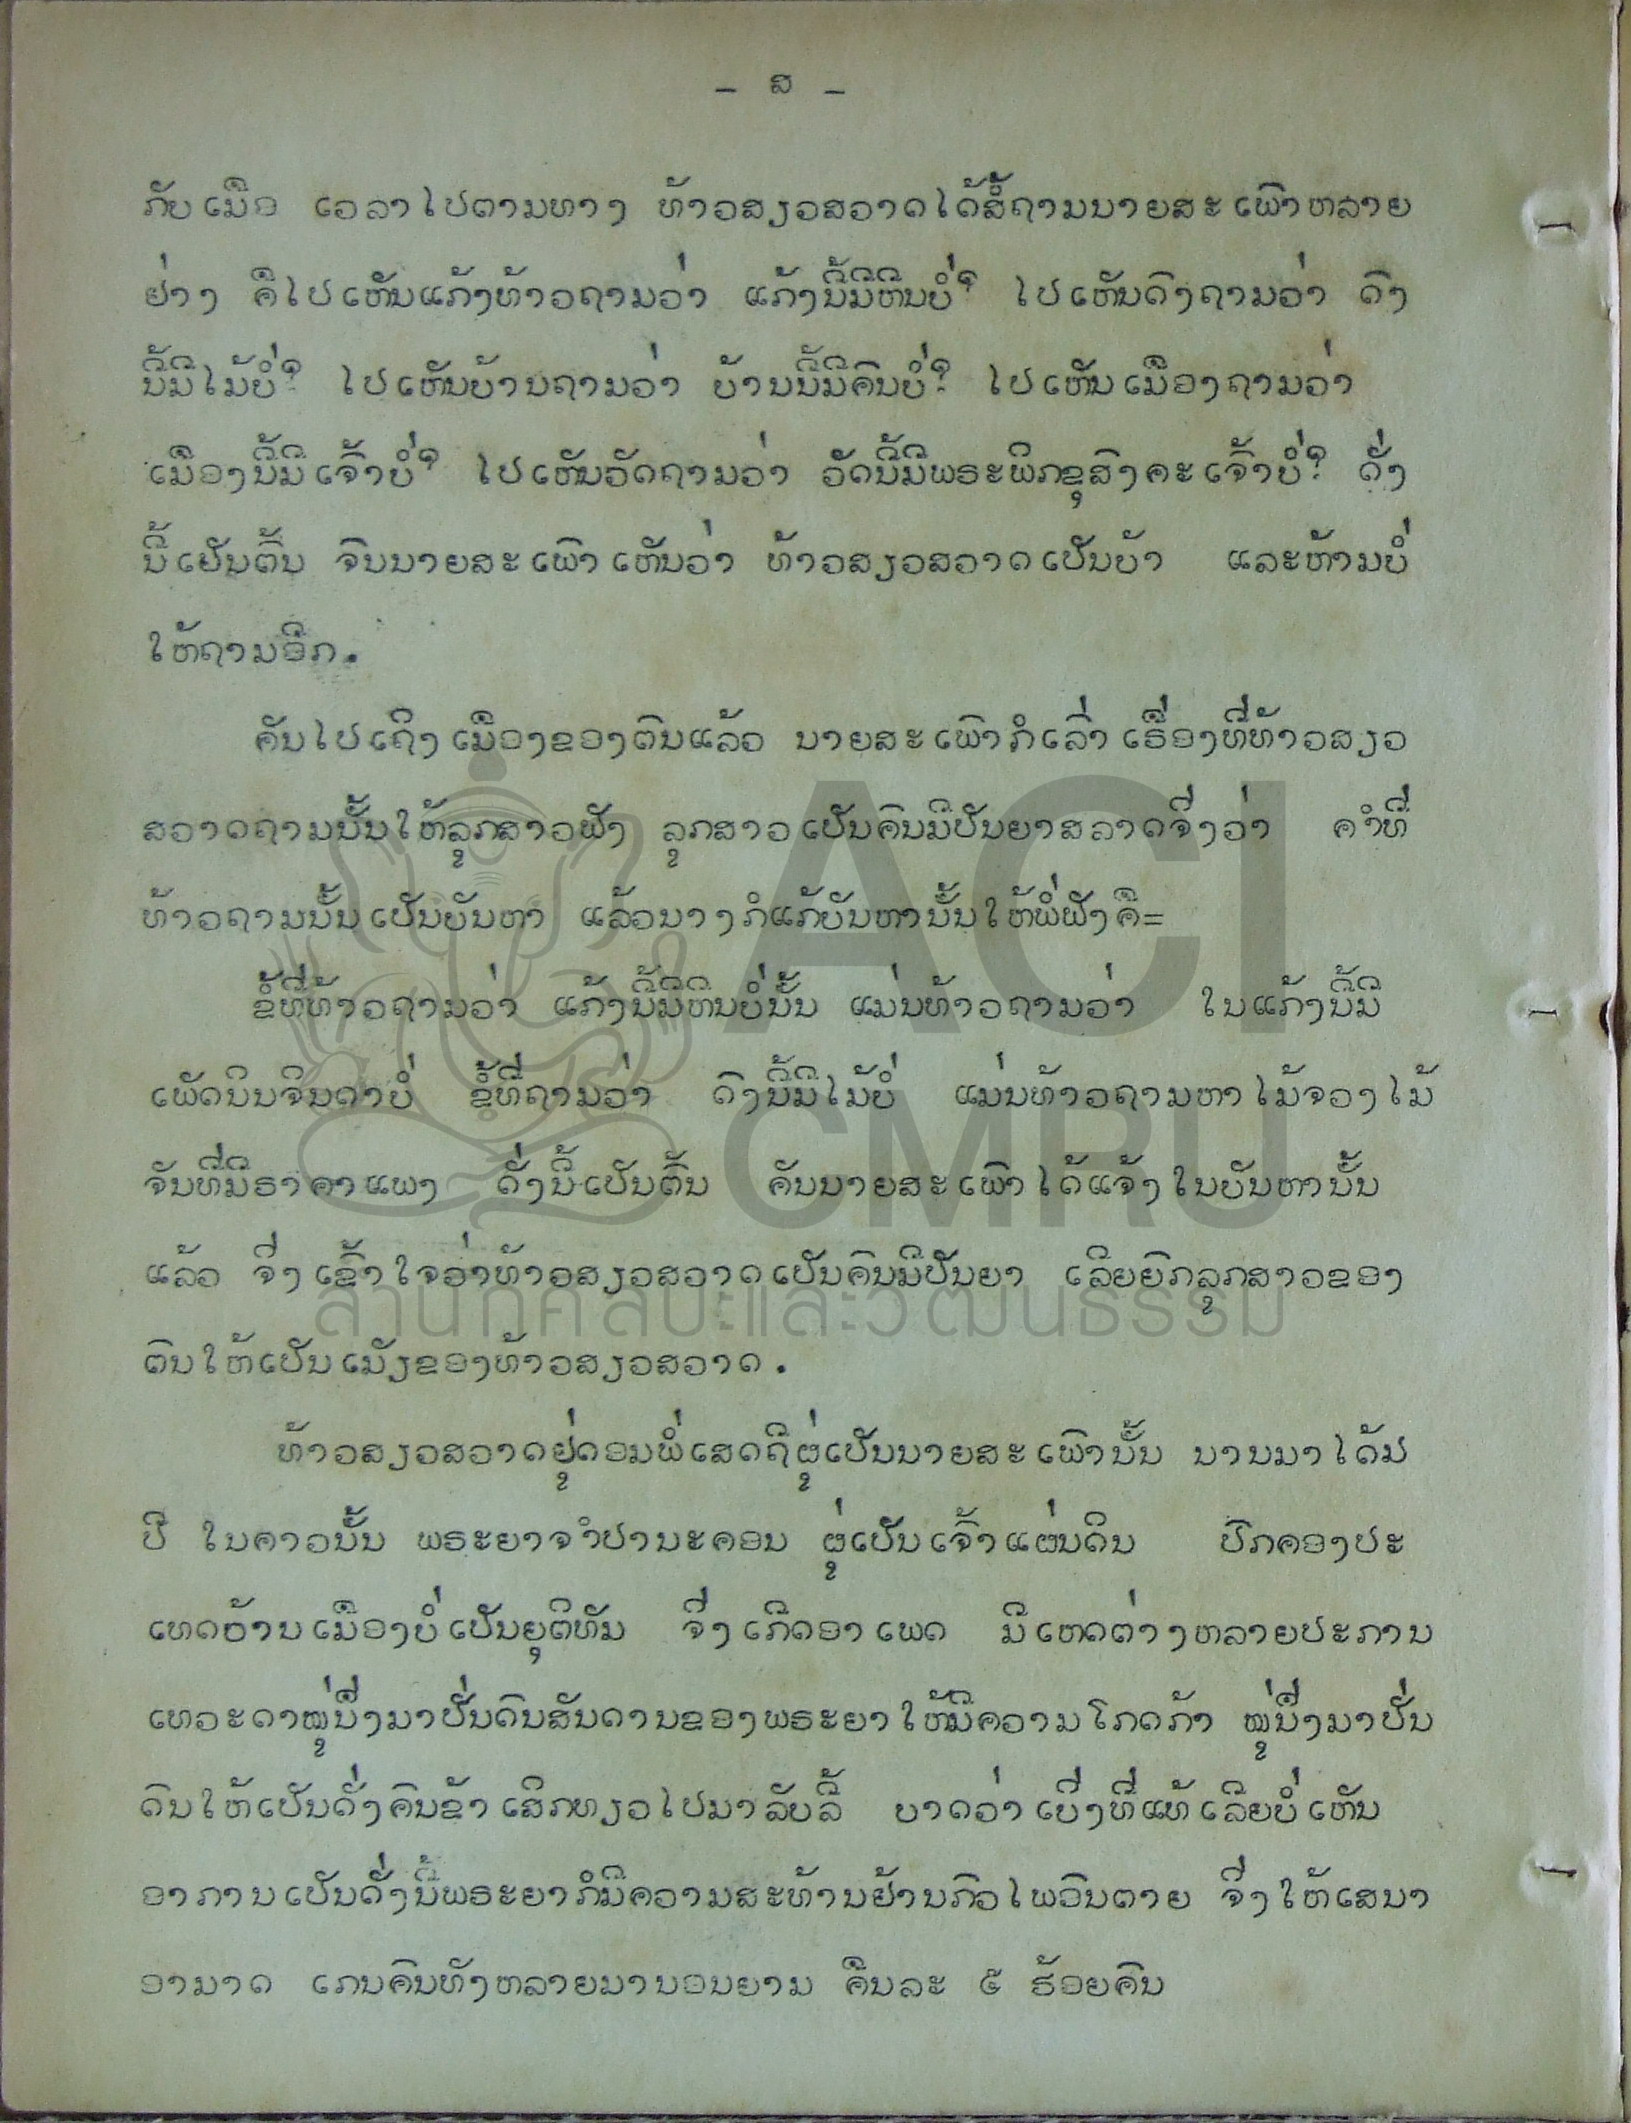 - ສ -
ກັບເມືອ ເວລາໄປຕາມທາງ ທ້າວສຽວສວາດໄດ້ສໍ້ຖາມນາຍສະເພົາຫລາຍ
ຢ່າງ ຄືໄປເຫັນແກ້ງທ້າວຖາມວ່າ ແກ້ງນີ້ມີຫີນບໍ່? ໄປເຫັນດົງຖາມວ່າ ດົງ
ນີ້ມີໄມ້ບໍ່? ໄປເຫັນບ້ານຖາມວ່າ ບ້ານນີ້ມີຄົນບໍ່? ໄປເຫັນເມືອງຖາມວ່າ
ເມືອງນີ້ມີເຈົ້າບໍ່? ໄປເຫັນວັດຖາມວ່າ ວັດນີ້ມີພຣະພິກຂຸສົງຄະເຈົ້າບໍ່? ດັ່ງ
ນີ້ເປັນຕົ້ນ ຈົນນາຍສະເພົາເຫັນວ່າ ທ້າວສຽວສວາດເປັນບ້າ ແລະຫ້າມບໍ່
ໃຫ້ຖາມອີກ.
ຄັນໄປເຖິງເມືອງຂອງຕົນແລ້ວ ນາຍສະເພົາກໍເລົ່າເຣື່ອງທີ່ທ້າວສຽວ
ສວາດຖາມນັ້ນໃຫ້ລູກສາວຟັງ ລູກສາວເປັນຄົນມີປັນຍາສລາດຈຶ່ງວ່າ ຄຳທີ່
ທ້າວຖາມນັ້ນເປັນບັນຫາ ແລ້ວນາງກໍແກ້ບັນຫານັ້ນໃຫ້ພໍ່ຟັງຄື=
ຂໍ້ທີ່ທ້າວຖາມວ່າ ແກ້ງນີ້ມີຫີນບໍ່ນັ້ນ ແມ່ນທ້າວຖາມວ່າ ໃນແກ້ງນີ້ມີ
ເພັດນິນຈິນດາບໍ່ ຂໍ້ທີ່ຖາມວ່າ ດົງນີ້ມີໄມ້ບໍ່ ແມ່ນທ້າວຖາມຫາໄມ້ຈວງໄມ້
ຈັນທີ່ມີຣາຄາແພງ ດັ່ງນີ້ເປັນຕົ້ນ ຄັນນາຍສະເພົາໄດ້ແຈ້ງໃນບັນຫານັ້ນ
ແລ້ວ ຈຶ່ງເຂົ້າໃຈວ່າທ້າວສຽວສວາດເປັນຄົນມີປັນຍາ ເລີຍຍົກລູກສາວຂອງ
ຕົນໃຫ້ເປັນເມັຽຂອງທ້າວສຽວສວາດ.
ທ້າວສຽວສວາດຢູ່ດອມພໍ່ເສດຖີຜູ່ເປັນນາຍສະເພົານັ້ນ ນານມາໄດ້ມ
ປີ ໃນຄາວນັ້ນ ພຣະຍາຈຳປານະຄອນ ຜູ່ເປັນເຈົ້າແຜ່ນດິນ ປົກຄອງປະ
ເທດບ້ານເມືອງບໍ່ເປັນຍຸຕິທັມ ຈຶ່ງເກີດອາເພດ ມີເຫດຕ່າງຫລາຍປະການ
ເທວະດາໝູ່ນຶ່ງມາປັ່ນດົນສັນດານຂອງພຣະຍາໃຫ້ມີຄວາມໂກດກ້າ ໝູ່ນຶ່ງມາປັ່ນ
ດົນໃຫ້ເປັນດັ່ງຄົນຂ້າເສິກທຽວໄປມາລັບລີ້ ບາດວ່າເບິ່ງທີ່ແທ້ເລີຍບໍ່ເຫັນ
ອາການເປັນດັ່ງນີ້ພຣະຍາກໍມີຄວາມສະທ້ານຢ້ານກົວໄພວົນຕາຍ ຈຶ່ງໃຫ້ເສນາ
ອາມາດ ເກນຄົນທັງຫລາຍມານອນຍາມ ຄືນລະ ໕ ຮ້ອຍຄົນ
ACI
CMRU
สำนักศิลปะและวัฒนธรรม